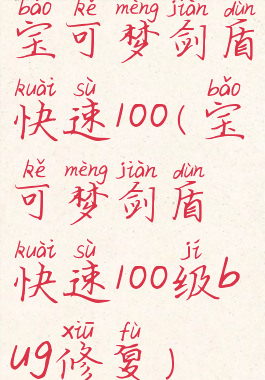 bǎo kě mèng jiàn dùn
宝可梦剑盾
kuài sù bǎo
快速100(宝
kě mèng jiàn dùn
可梦剑盾
kuài sù jí
快速100级b
xiū fù
ug修复)